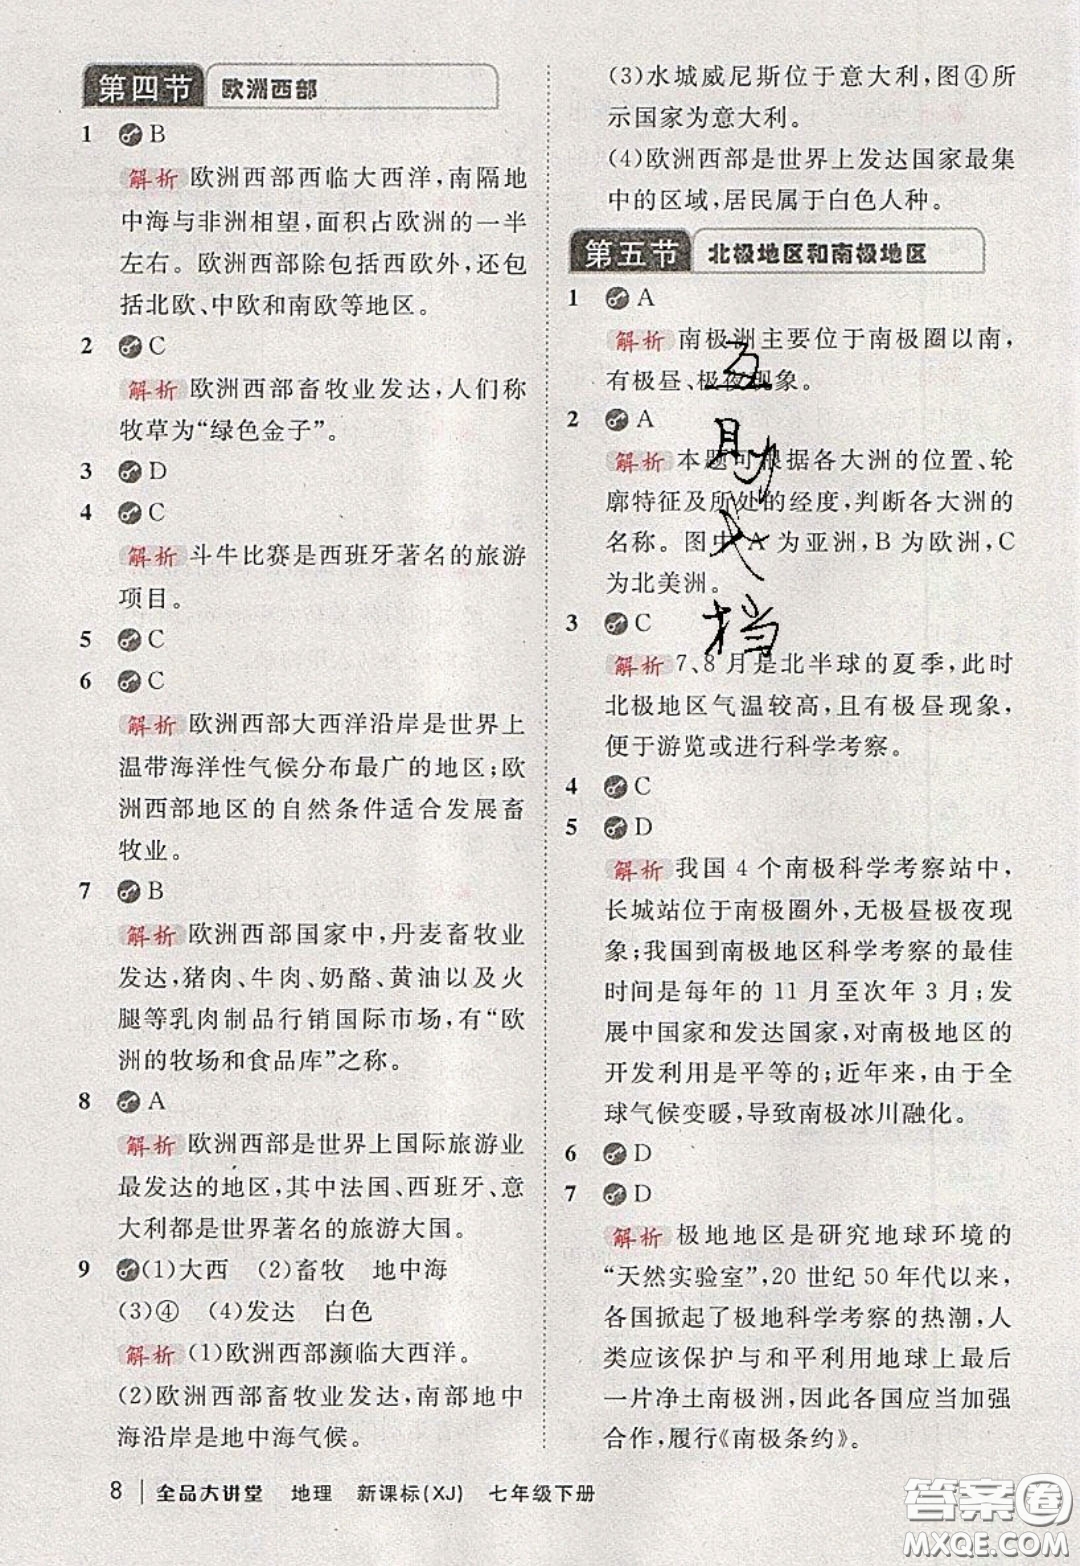 第四节 欧洲西部
1 B
解析 欧洲西部西临大西洋,南隔地
中海与非洲相望,面积占欧洲的一半
左右。欧洲西部除包括西欧外,还包
括北欧、中欧和南欧等地区。
2 C
解析 欧洲西部畜牧业发达,人们称
牧草为“绿色金子”。
3 D
4 C
解析 斗牛比赛是西班牙著名的旅游
项目。
5 C
6 C
解析 欧洲西部大西洋沿岸是世界上
温带海洋性气候分布最广的地区;欧
洲西部地区的自然条件适合发展畜
牧业。
7 B
解析 欧洲西部国家中,丹麦畜牧业
发达,猪肉、牛肉、奶酪、黄油以及火
腿等乳肉制品行销国际市场,有“欧
洲的牧场和食品库”之称。
8 A
解析 欧洲西部是世界上国际旅游业
最发达的地区,其中法国、西班牙、意
大利都是世界著名的旅游大国。
9 (1)大西 (2)畜牧 地中海
(3)④ (4)发达 白色
解析 (1)欧洲西部濒临大西洋。
(2)欧洲西部畜牧业发达,南部地中
海沿岸是地中海气候。
(3)水城威尼斯位于意大利,图④所
示国家为意大利。
(4)欧洲西部是世界上发达国家最集
中的区域,居民属于白色人种。
第五节 北极地区和南极地区
1 A
解析 南极洲主要位于南极圈以南,
有极昼、极夜现象。
2 A
解析 本题可根据各大洲的位置、轮
廓特征及所处的经度,判断各大洲的
名称。图中 A 为亚洲,B 为欧洲,C
为北美洲。
3 C
解析 7、8 月是北半球的夏季,此时
北极地区气温较高,且有极昼现象,
便于游览或进行科学考察。
4 C
5 D
解析 我国 4 个南极科学考察站中,
长城站位于南极圈外,无极昼极夜现
象;我国到南极地区科学考察的最佳
时间是每年的 11 月至次年 3 月;发
展中国家和发达国家,对南极地区的
开发利用是平等的;近年来,由于全
球气候变暖,导致南极冰川融化。
6 D
7 D
解析 极地地区是研究地球环境的
“天然实验室”,20 世纪 50 年代以来,
各国掀起了极地科学考察的热潮,人
类应该保护与和平利用地球上最后
一片净土南极洲,因此各国应当加强
合作,履行《南极条约》。
8 全品大讲堂 地理 新课标(XJ) 七年级下册
答案圈
MXQE.COM